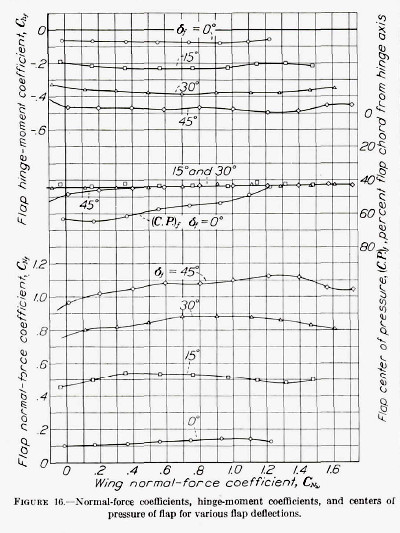 0
-.2
-.4
-.6
Flap hinge-moment coefficient, C
δf = 0°
15°
30°
45°
0
20
40
60
80
Flap center of pressure, (C.P.)f, percent flap chord from hinge axis
15° and 30°
45°
(C.P.)f δf = 0°
Flap normal-force coefficient, C
1.2
1.0
.8
.6
.4
.2
0
δf = 45°
30°
15°
0°
0 .2 .4 .6 .8 1.0 1.2 1.4 1.6
Wing normal-force coefficient, C
FIGURE 16.—Normal-force coefficients, hinge-moment coefficients, and centers of
pressure of flap for various flap deflections.